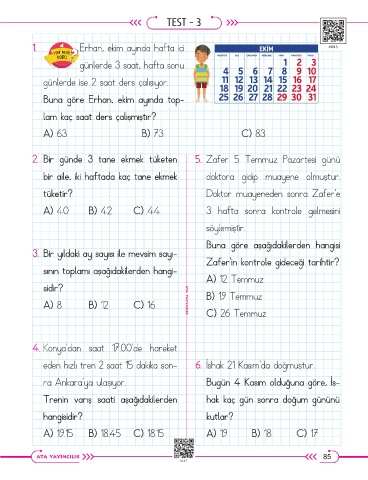 TEST - 3
1. Erhan, ekim ayında hafta içi
günlerde 3 saat, hafta sonu
günlerde ise 2 saat ders çalışıyor.
Buna göre Erhan, ekim ayında top-
lam kaç saat ders çalışmıştır?
A) 63 B) 73 C) 83
EKİM
1 2 3
4 5 6 7 8 9 10
11 12 13 14 15 16 17
18 19 20 21 22 23 24
25 26 27 28 29 30 31
2. Bir günde 3 tane ekmek tüketen
bir aile, iki haftada kaç tane ekmek
tüketir?
A) 40 B) 42 C) 44
3. Bir yıldaki ay sayısı ile mevsim sayı-
sının toplamı aşağıdakilerden hangi-
sidir?
A) 8 B) 12 C) 16
4. Konya'dan saat 17.00'de hareket
eden hızlı tren 2 saat 15 dakika son-
ra Ankara'ya ulaşıyor.
Trenin varış saati aşağıdakilerden
hangisidir?
A) 19.15 B) 18.45 C) 18.15
5. Zafer 5 Temmuz Pazartesi günü
doktora gidip muayene olmuştur.
Doktor muayeneden sonra Zafer'e
3 hafta sonra kontrole gelmesini
söylemiştir.
Buna göre aşağıdakilerden hangisi
Zafer'in kontrole gideceği tarihtir?
A) 12 Temmuz
B) 19 Temmuz
C) 26 Temmuz
6. İshak 21 Kasım'da doğmuştur.
Bugün 4 Kasım olduğuna göre, İs-
hak kaç gün sonra doğum gününü
kutlar?
A) 19 B) 18 C) 17
ATA YAYINCILIK
85